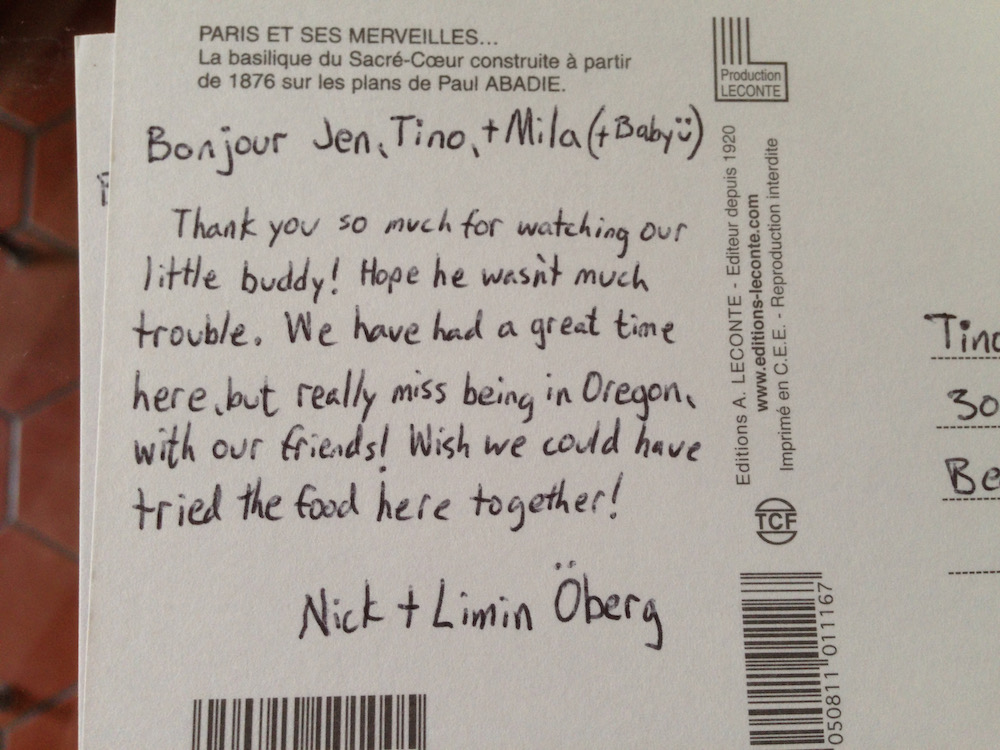 PARIS ET SES MERVEILLES...
La basilique du Sacré-Cœur construite à partir
de 1876 sur les plans de Paul ABADIE.
Bonjour Jen, Tino, + Mila (+ Baby)
Thank you so much for watching our
little buddy! Hope he wasn't much
trouble. We have had a great time
here, but really miss being in Oregon,
with our friends! Wish we could have
tried the food here together!
Nick + Limin Öberg
Production
LECONTE
Editions A. LECONTE - Editeur depuis 1920
www.editions-leconte.com
Imprimé en C.E.E. - Reproduction interdite
TCF
050811 011167
Tino
30
Be